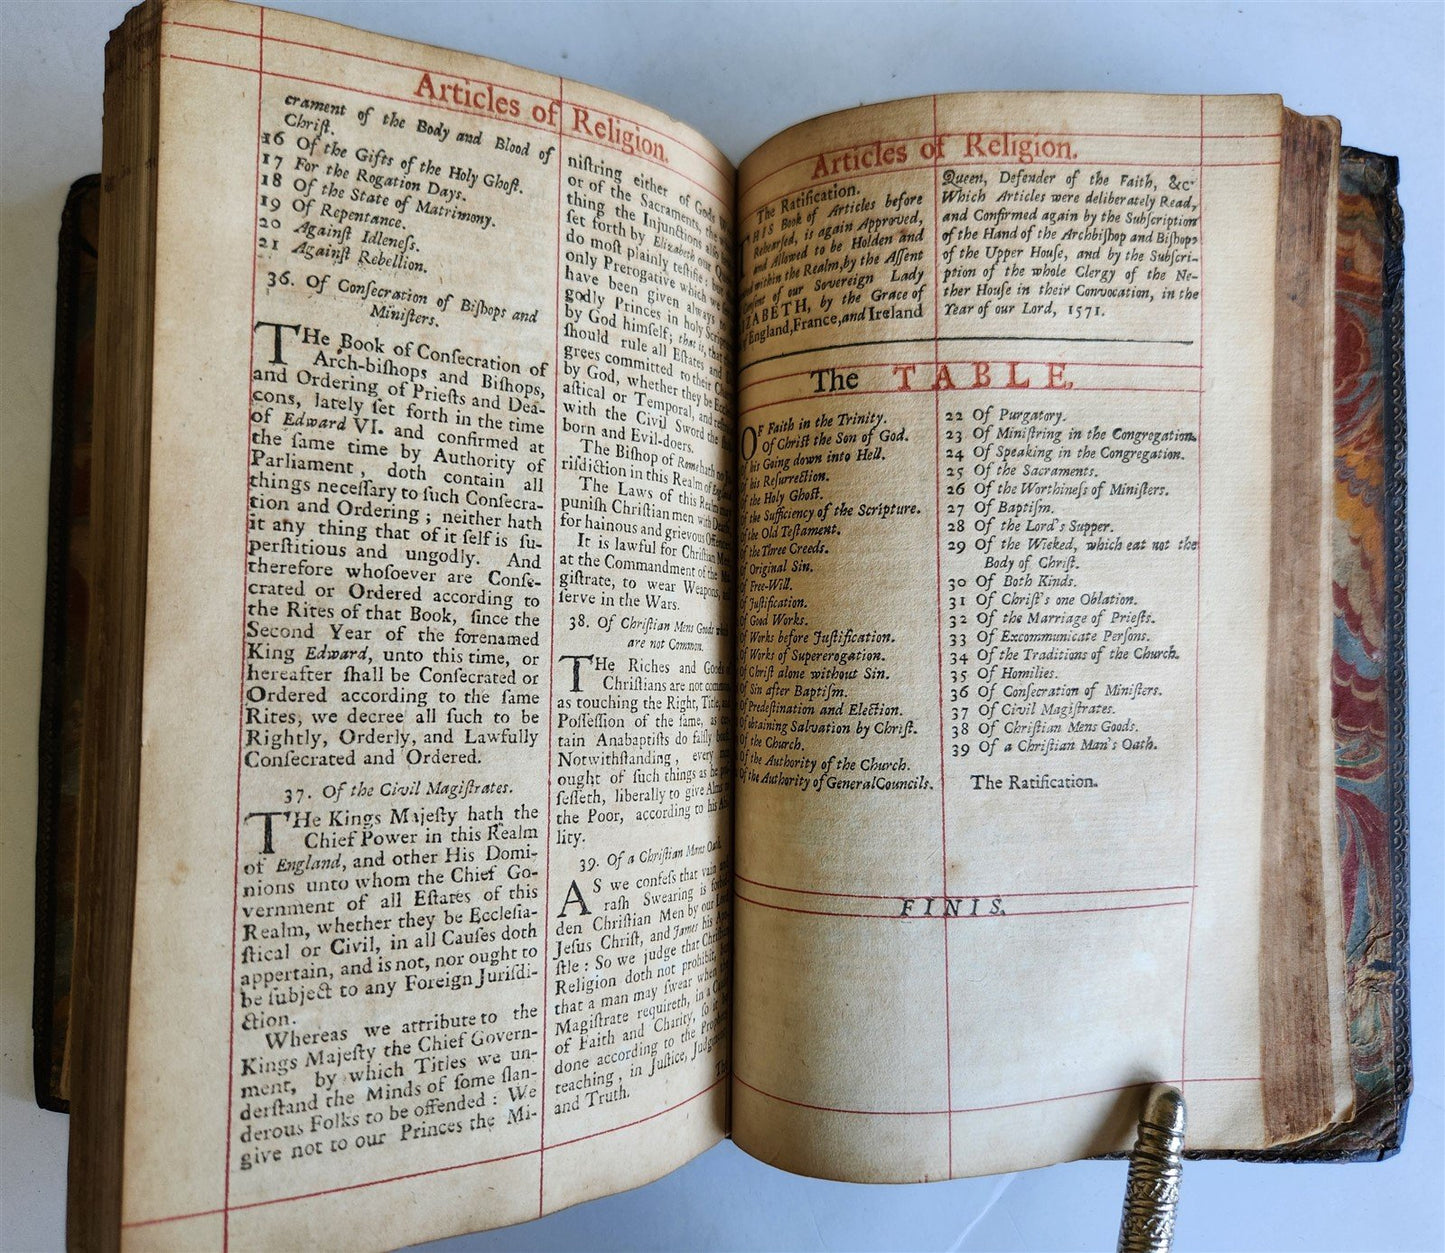 Articles of Religion.
crament of the Body and Blood of
Chriſt.
16 Of the Gifts of the Holy Ghoſt.
17 For the Rogation Days.
18 Of the State of Matrimony.
19 Of Repentance.
20 Againſt Idleneſs.
21 Againſt Rebellion.
36. Of Conſecration of Biſhops and
Miniſters.
THe Book of Conſecration of
Arch-biſhops and Biſhops,
and Ordering of Prieſts and Dea-
cons, lately ſet forth in the time
of Edward VI. and confirmed at
the ſame time by Authority of
Parliament, doth contain all
things neceſſary to ſuch Conſecra-
tion and Ordering; neither hath
it any thing that of it ſelf is ſu-
perſtitious and ungodly. And
therefore whoſoever are Conſe-
crated or Ordered according to
the Rites of that Book, ſince the
Second Year of the forenamed
King Edward, unto this time, or
hereafter ſhall be Conſecrated or
Ordered according to the ſame
Rites, we decree all ſuch to be
Rightly, Orderly, and Lawfully
Conſecrated and Ordered.
37. Of the Civil Magiſtrates.
THe Kings Majeſty hath the
Chief Power in this Realm
of England, and other His Domi-
nions unto whom the Chief Go-
vernment of all Eſtates of this
Realm, whether they be Eccleſia-
ſtical or Civil, in all Cauſes doth
appertain, and is not, nor ought to
be ſubject to any Foreign Juriſdi-
ction.
Whereas we attribute to the
Kings Majeſty the Chief Govern-
ment, by which Titles we un-
derſtand the Minds of ſome ſlan-
derous Folks to be offended: We
give not to our Princes the Mi-
niſtring either of Gods
or of the Sacraments, the
thing the Injunctions alſo
ſet forth by Elizabeth our
do moſt plainly teſtifie: but
only Prerogative which we
have been given always to
godly Princes in holy
by God himſelf; that is, that
ſhould rule all Eſtates and
grees committed to their
by God, whether they be
aſtical or Temporal, and
with the Civil Sword the
born and Evil-doers.
The Biſhop of Rome hath no
riſdiction in this Realm of England
The Laws of this Realm may
puniſh Chriſtian men with Death,
for hainous and grievous
It is lawful for Chriſtian Men,
at the Commandment of the
giſtrate, to wear Weapons,
ſerve in the Wars.
38. Of Chriſtian Mens Goods which
are not Common.
THe Riches and Goods
Chriſtians are not common,
as touching the Right, Title, and
Poſſeſſion of the ſame, as
tain Anabaptiſts do falſly
Notwithſtanding, every
ought of ſuch things as he
ſeſſeth, liberally to give Alms
the Poor, according to his
lity.
39. Of a Chriſtian Mans Oath.
AS we confeſs that vain
raſh Swearing is
den Chriſtian Men by our Lord
Jeſus Chriſt, and James his
ſtle: So we judge that Chriſtian
Religion doth not prohibit,
that a man may ſwear when
Magiſtrate requireth, in a
of Faith and Charity, ſo it
done according to the
teaching, in Juſtice,
and Truth.
Articles of Religion.
The Ratification.
THIS Book of Articles before
Rehearſed, is again Approved,
and Allowed to be Holden and
within the Realm, by the Aſſent
of our Sovereign Lady
by the Grace of
England, France, and Ireland
Queen, Defender of the Faith, &c.
Which Articles were deliberately Read,
and Confirmed again by the Subſcription
of the Hand of the Archbiſhop and Biſhops
of the Upper Houſe, and by the Subſcri-
ption of the whole Clergy of the Ne-
ther Houſe in their Convocation, in the
Year of our Lord, 1571.
The TABLE.
OF Faith in the Trinity.
Of Chriſt the Son of God.
his Going down into Hell.
Of his Reſurrection.
Of the Holy Ghoſt.
Of the Sufficiency of the Scripture.
Of the Old Teſtament.
Of the Three Creeds.
Of Original Sin.
Of Free-Will.
Of Juſtification.
Of Good Works.
Of Works before Juſtification.
Of Works of Supererogation.
Of Chriſt alone without Sin.
Of Sin after Baptiſm.
Of Predeſtination and Election.
Of obtaining Salvation by Chriſt.
Of the Church.
Of the Authority of the Church.
Of the Authority of General Councils.
22 Of Purgatory.
23 Of Miniſtring in the Congregation.
24 Of Speaking in the Congregation.
25 Of the Sacraments.
26 Of the Worthineſs of Miniſters.
27 Of Baptiſm.
28 Of the Lord's Supper.
29 Of the Wicked, which eat not the
Body of Chriſt.
30 Of Both Kinds.
31 Of Chriſt's one Oblation.
32 Of the Marriage of Prieſts.
33 Of Excommunicate Perſons.
34 Of the Traditions of the Church.
35 Of Homilies.
36 Of Conſecration of Miniſters.
37 Of Civil Magiſtrates.
38 Of Chriſtian Mens Goods.
39 Of a Chriſtian Man's Oath.
The Ratification.
FINIS.